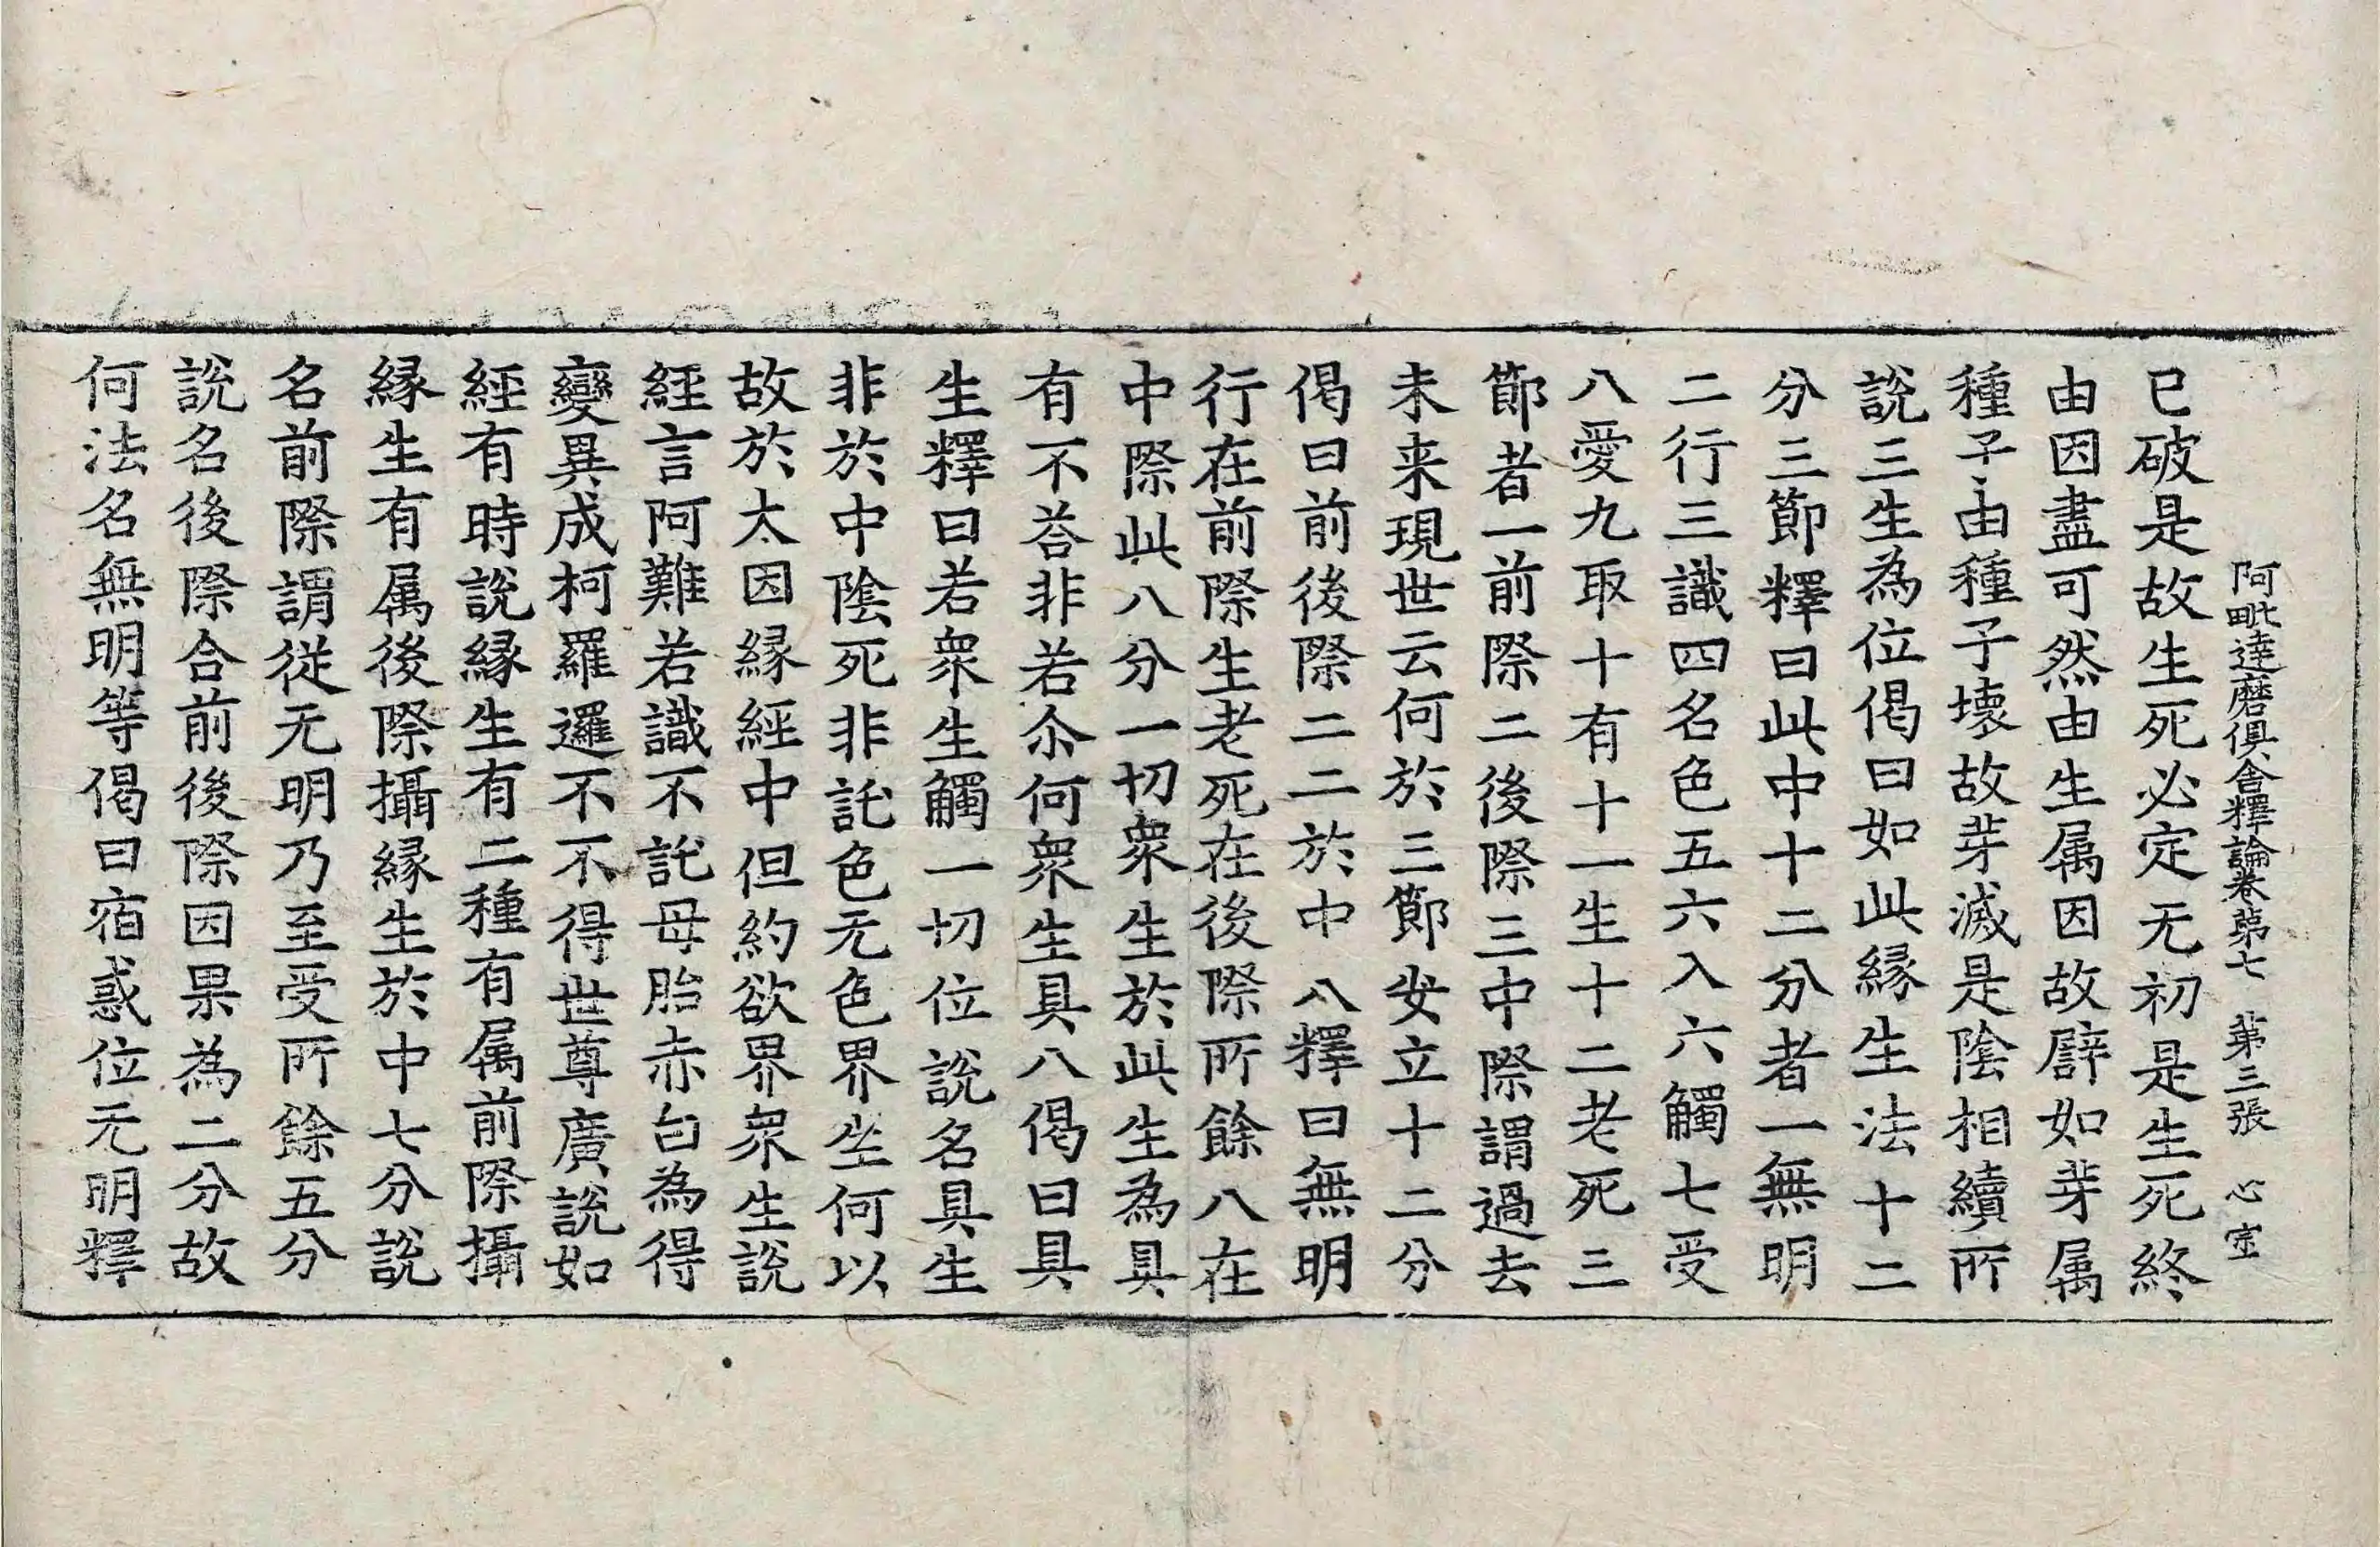 阿毗達磨俱舍釋論卷第七　第三張　心㝎
已破是故生死必定无初是生死終
由因盡可然由生属因故辟如芽属
種子由種子壞故芽滅是陰相續所
說三生為位偈曰如此縁生法十二
分三節釋曰此中十二分者一無明
二行三識四名色五六入六觸七受
八愛九取十有十一生十二老死三
節者一前際二後際三中際謂過去
未来現世云何於三節安立十二分
偈曰前後際二二於中八釋曰無明
行在前際生老死在後際所餘八在
中際此八分一切衆生於此生為具
有不荅非若尒何衆生具八偈曰具
生釋曰若衆生觸一切位說名具生
非於中陰死非託色无色界生何以
故於大因縁經中但約欲界衆生說
經言阿難若識不託母胎赤白為得
變異成柯羅邏不不得世尊廣說如
經有時說縁生有二種有属前際攝
縁生有属後際攝縁生於中七分說
名前際謂從无明乃至受所餘五分
說名後際合前後際因果為二分故
何法名無明等偈曰宿惑位无明釋